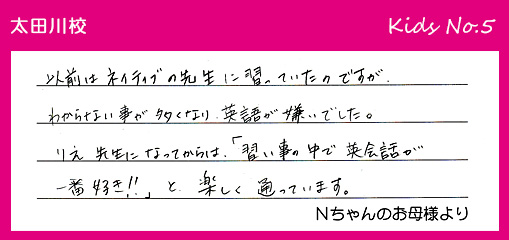 太田川校
Kids No.5
以前はネイティブの先生に習っていたのですが、
わからない事が多くなり、英語が嫌いでした。
りえ先生になってからは、「習い事の中で英会話が
一番好き!!」と、楽しく通っています。
Nちゃんのお母様より